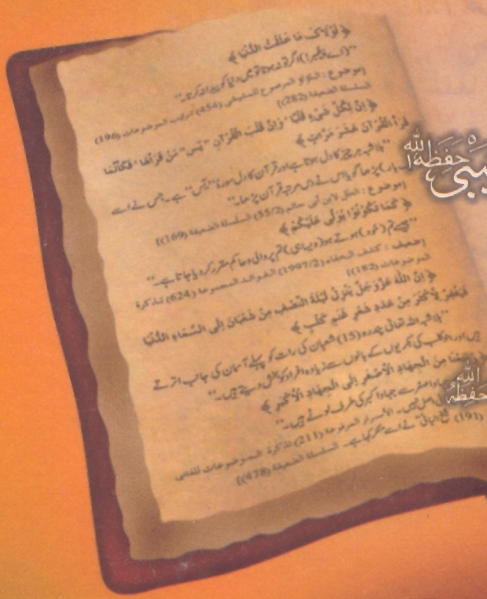 ﴿ لَوْلَاكَ مَا خَلَقْتُ الدُّنْيَا ﴾
"(اے پیغمبر!) اگر تو نہ ہوتا تو میں دنیا کو پیدا نہ کرتا۔"
(موضوع : اللؤلؤ المرصوع للمشيشي (454) ترتيب الموضوعات (196)
السلسلة الضعيفة (282))
﴿ إِنَّ لِكُلِّ شَيْءٍ قَلْبًا وَإِنَّ قَلْبَ الْقُرْآنِ "يس" مَنْ قَرَأَهَا فَكَأَنَّمَا
قَرَأَ الْقُرْآنَ عَشَرَ مَرَّاتٍ ﴾
"بلاشبہ ہر چیز کا دل ہوتا ہے اور قرآن کا دل سورۂ "یٰس" ہے۔ جس نے اسے
پڑھا گویا کہ اس نے دس مرتبہ قرآن پڑھا۔"
(موضوع : العلل لابن أبي حاتم (55/2) السلسلة الضعيفة (169))
﴿ كَمَا تَكُونُوا يُوَلّٰى عَلَيْكُمْ ﴾
"جیسے تم (خود) ہوتے ہو (ویسا ہی) تم پر والی و حاکم مقرر کر دیا جاتا ہے۔"
(ضعيف : كشف الخفاء (1997/2) الفوائد المجموعة (624) تذكرة
الموضوعات (182))
﴿ إِنَّ اللّٰهَ عَزَّوَجَلَّ يَنْزِلُ لَيْلَةَ النِّصْفِ مِنْ شَعْبَانَ إِلَى السَّمَاءِ الدُّنْيَا
فَيَغْفِرُ لِأَكْثَرَ مِنْ عَدَدِ شَعْرِ غَنَمِ كَلْبٍ ﴾
"بلاشبہ اللہ تعالیٰ پندرہ (15) شعبان کی رات کو پہلے آسمان کی جانب اترتے
ہیں اور بنو کلب کی بکریوں کے بالوں سے زیادہ افراد کو بخش دیتے ہیں۔"
مِنَ الْجِهَادِ الْأَصْغَرِ إِلَى الْجِهَادِ الْأَكْبَرِ ﴾
جہاد اصغر سے جہاد اکبر کی طرف لوٹے ہیں۔"
الأسرار المرفوعة (211) تذكرة الموضوعات للفتني
(191) نے اسے منکر کہا ہے۔ السلسلة الضعيفة (478))
حفظہ اللہ
حفظہ اللہ